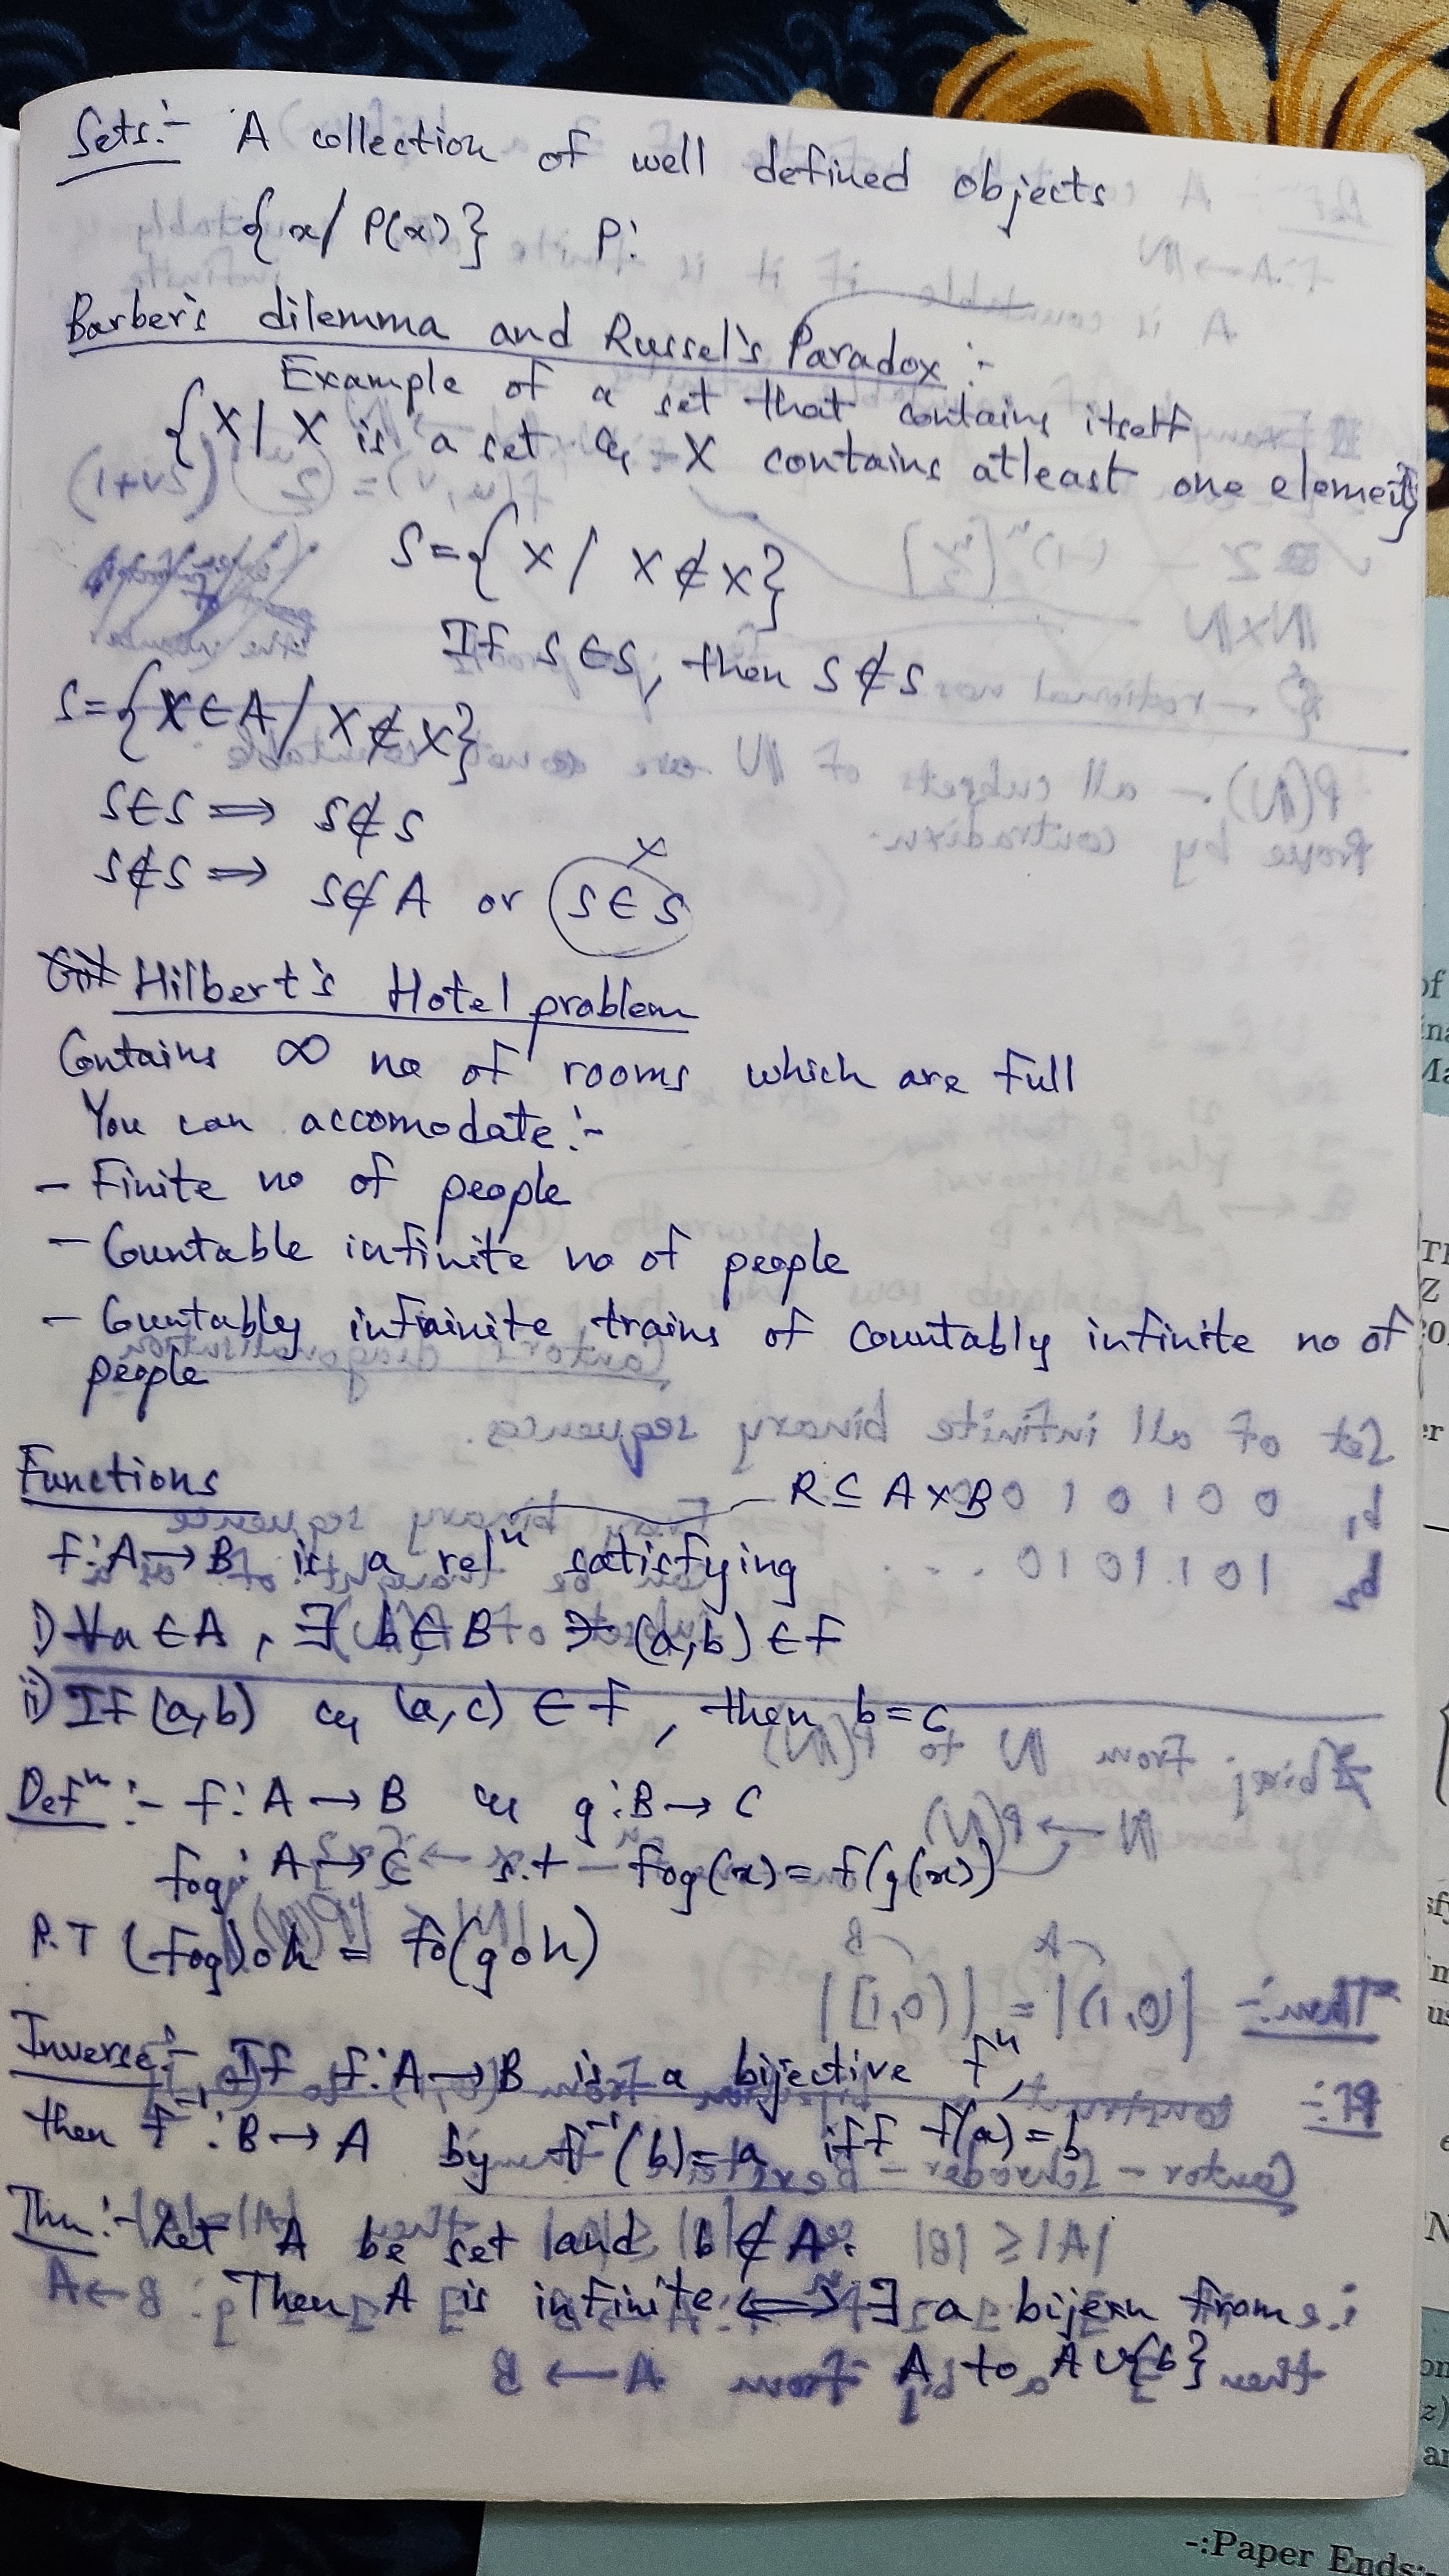 Sets:- A collection of well defined objects
{x/ P(x)} P:
Barber's dilemma and Russel's Paradox :-
Example of a set that contains itself
{X/ X is a set & X contains atleast one element}
S={X/ X∉X}
If S∈S, then S∉S
S={X∈A/ X∉X}
S∈S ⟹ S∉S
S∉S ⟹ S∉A or S∈S
x
Hilbert's Hotel problem
Contains ∞ no of rooms which are full
You can accomodate:-
- Finite no of people
- Countable infinite no of people
- Countably infinite trains of countably infinite no of
people
Functions
R⊆A×B
f:A→B is a relⁿ satisfying
i) ∀a∈A, ∃ b∈B ∋ (a,b)∈f
ii) If (a,b) & (a,c) ∈ f, then b=c
Defⁿ:- f:A→B & g:B→C
fog: A→C s.t fog(x)=f(g(x))
P.T (fog)oh = fo(goh)
Inverse:- If f:A→B is a bijective fⁿ,
then f⁻¹:B→A by f⁻¹(b)=a iff f(a)=b
Thm:- Let A be set and b∉A.
Then A is infinite ⟺ ∃ a bijexn from
A to A∪{b}
-:Paper Ends:-